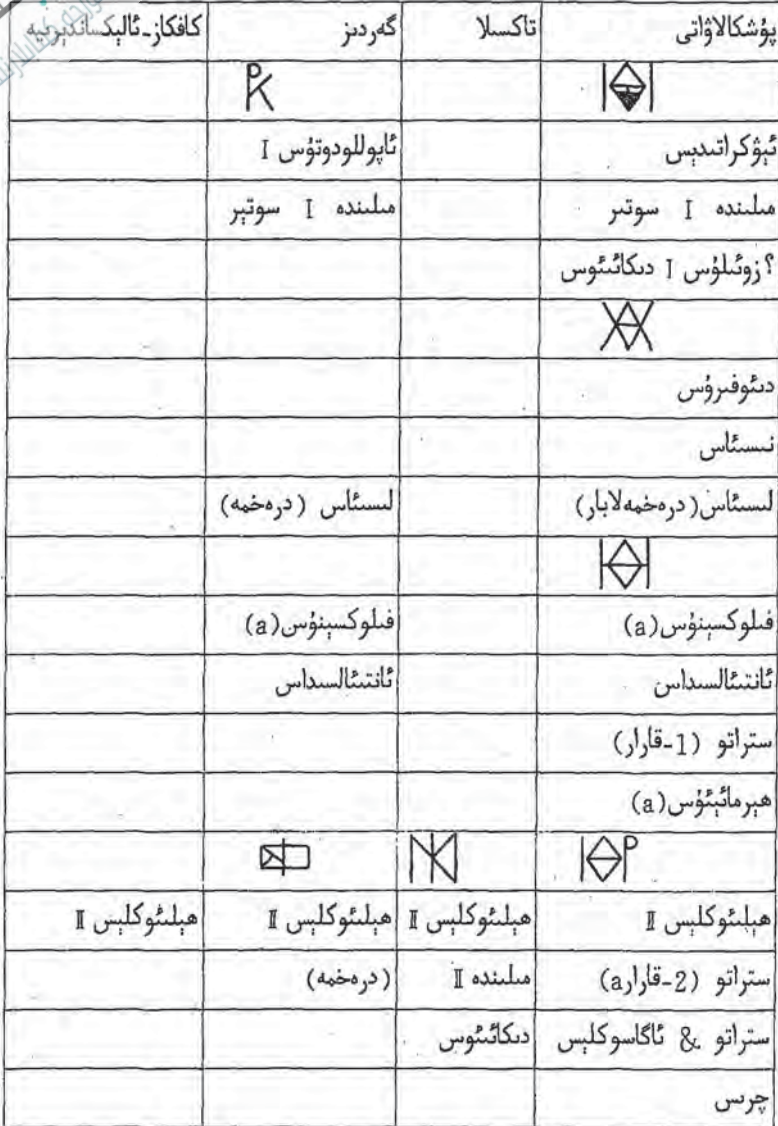 پۇشكالاۋاتى تاكسىلا گەردىز كافكاز-ئالېكساندېرىيە
ئېۋكراتىدېس ئاپوللودوتۇس I
مىلىندە I سوتىر مىلىندە I سوتېر
؟زوئىلۇس I دىكائىئوس
دىئوفىرۇس
نىسىئاس
لىسىئاس(درەخمەلابار) لىسىئاس (درەخمە)
فىلوكسېنۇس(a) فىلوكسېنۇس(a)
ئانتىئالىسداس ئانتىئالىسداس
ستراتو (1-قارار)
ھېرمائېئۇس(a)
ھېلىئوكلېس II ھېلىئوكلېس II ھېلىئوكلېس II ھېلىئوكلېس II
ستراتو (2-قارارa) مىلىندە II (درەخمە)
ستراتو & ئاگاسوكلېس دىكائىئوس
چرىس